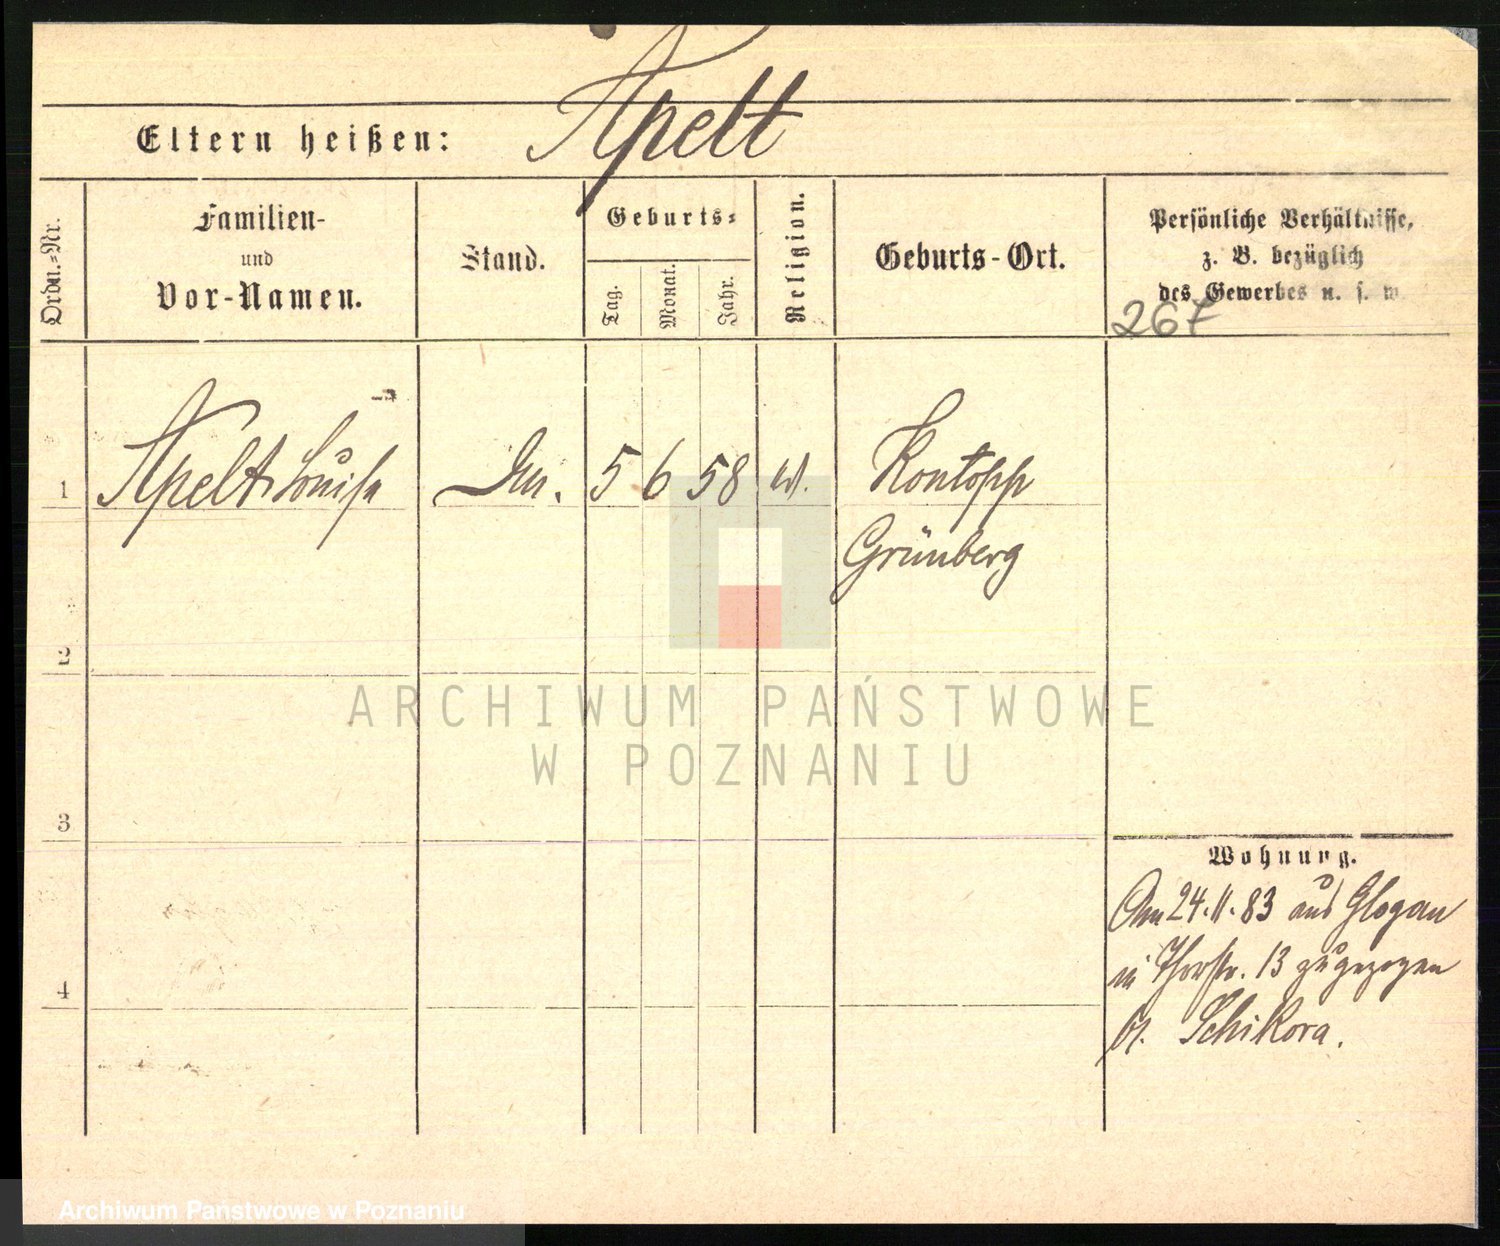 Apelt
Eltern heißen:
Ordn.-Nr.
Familien-
und
Vor-Namen.
Stand.
Geburts-
Tag.
Monat.
Jahr.
Religion.
Geburts-Ort.
Persönliche Verhältnisse,
z. B. bezüglich
des Gewerbes u. s. w.
267
1
Apelt Louise
5
6
58
Kontopp
Grünberg
2
3
4
Wohnung.
Am 24.11.83 aus Glogau
in Thorstr. 13 zugezogen
b. Schikora.
ARCHIWUM PAŃSTWOWE
W POZNANIU
Archiwum Państwowe w Poznaniu